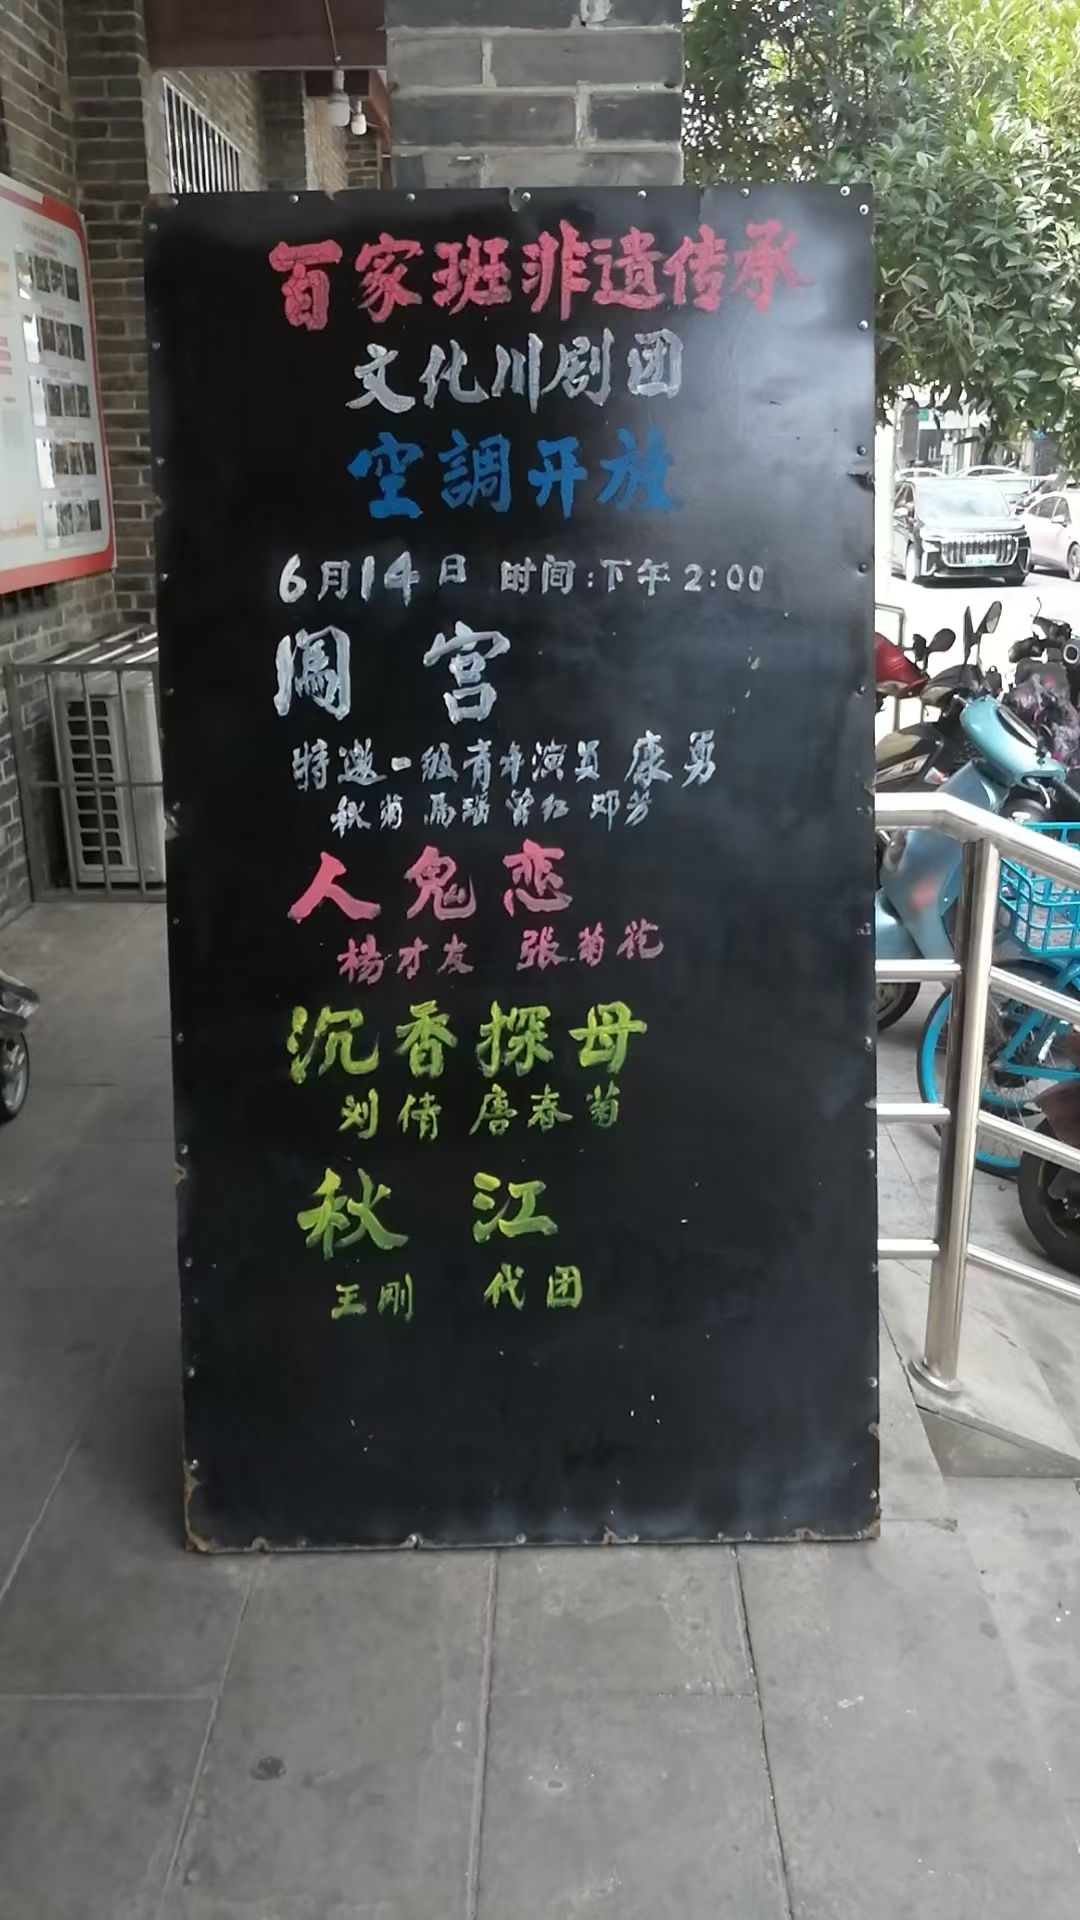 百家班非遗传承
文化川剧团
空調开放
6月14日 时间:下午2:00
闯 宫
特邀一级青年演员 康勇
秋菊 馬强 曾红 邓芳
人鬼恋
楊才友 张菊花
沉香探母
刘倩 唐春菊
秋 江
王刚 代团